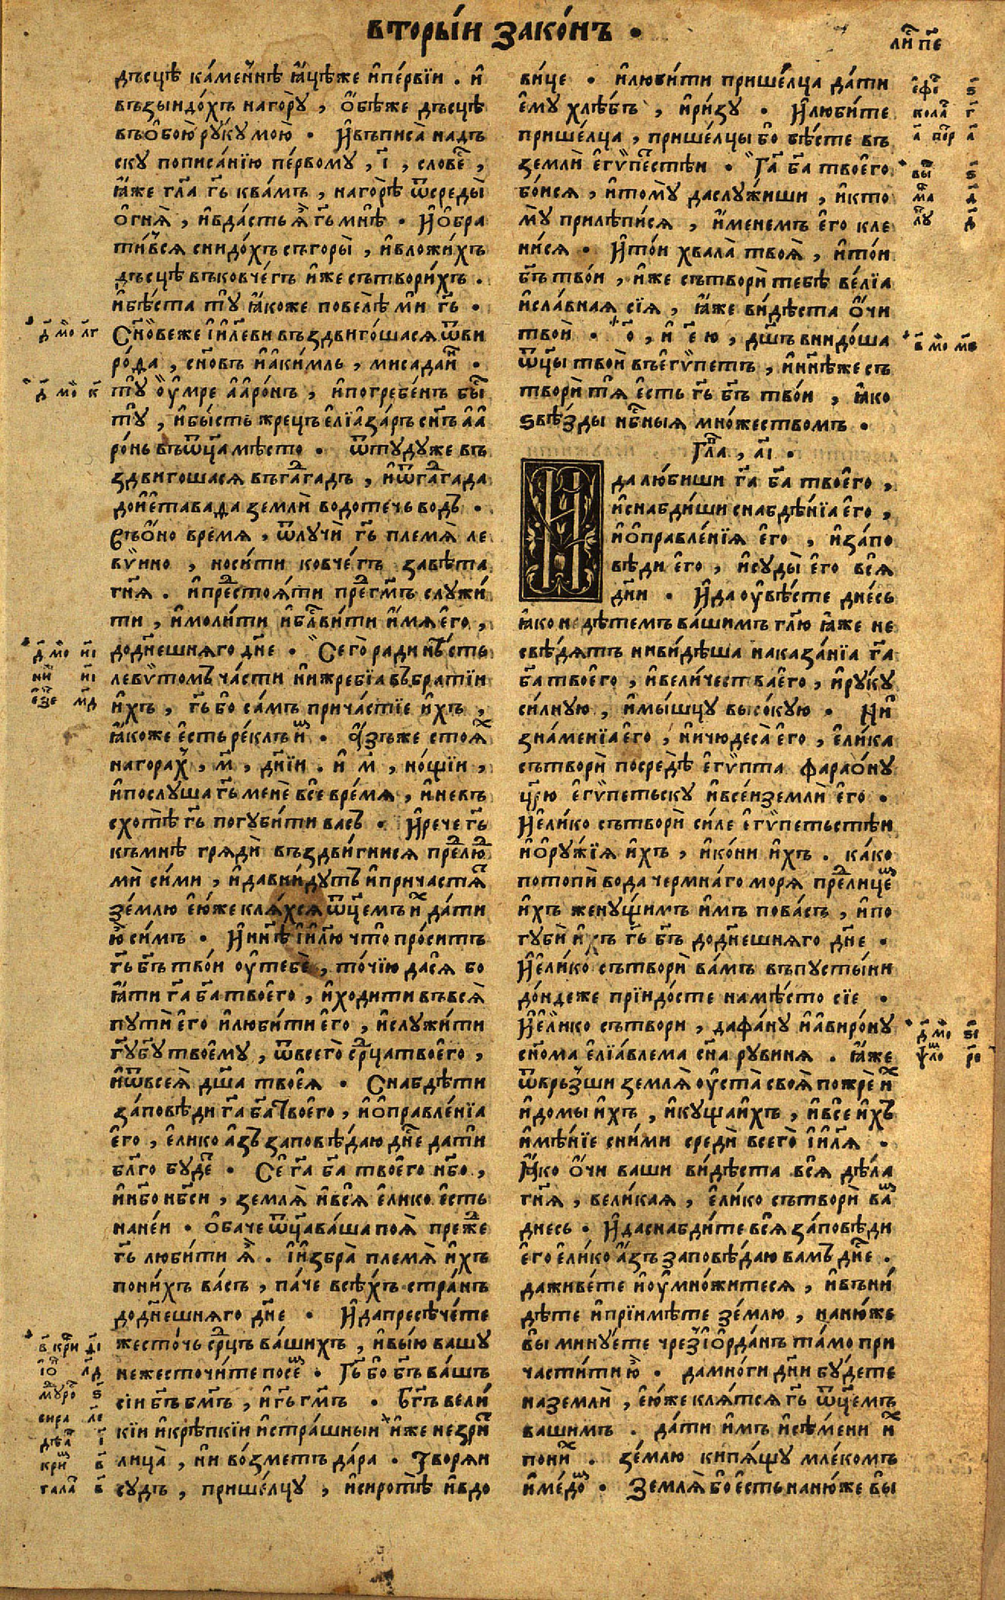 вторы́и зако́нъ ·
лиⷭ҇ пє҃
дъсцѣ ка́меннѣ ꙗ҆́цѣже и҆пе́рвїи . и҆
възыидо́хъ нагорꙋ̀ , ѻ҆́бѣже дъсцѣ
въѻ҆бою̀ рꙋкꙋ̀ моє́ю · И҆въписа̀ надъ
скꙋ пописа́нїю пе́рвомꙋ , і҃ , слове́с ,
ꙗ҆́же гл҃а гь҃ квамъ , нагорѣ̀ ѿсреды̀
ѻ҆гнѧ̀ , и҆вда́сть ѧ҆̀ гь҃ мнѣ̀ · И҆ѻ҆бра
ти́всѧ снидо́хъ съгоры̀ , и҆вложи́хъ
дъсцѣ въковче́гъ и҆́же сътвори́хъ ·
и҆бѣ́ста тꙋ̀ ꙗ҆́коже повелѣ̀ ми гь҃ ·
дв҃ мо лг
Сн҃овеже і҆и҃леви въздвиго́шасѧ ѿви
ро́да , сн҃овъ и҆аки́мль , мисада́й ·
дв҃ мо к
тꙋ̀ ᲂу҆́мре а҆арѡ́нъ , и҆погребе́нъ бы́сть
тꙋ̀ , и҆бы́сть жрецъ є҆лїаза́ръ сн҃ъ а҆а
ро́нь въѿц҃а мѣ́сто · ѿтꙋ́дꙋже въ
здвиго́шасѧ въга́дгадъ , и҆ѿга́дгада
дои҆є҆тава́да землѝ водоте́чь во́дъ ·
Въѻ҆́но вре́мѧ , ѿлꙋчѝ гь҃ пле́мѧ ле
вѵ́ино , носи́ти ковче́гъ завѣ́та
гн҃ѧ . и҆престоѧ́ти прегм҃ъ слꙋжи́
ти , и҆моли́ти и҆блгⷭ҇ви́ти и҆́мѧ є҆го̀ ,
дв҃ мо и҃і
додн҃ешнѧго дн҃е · Сего̀ ради нѣ́сть
леви́томъ ча́сти нижре́бїа въбра́тїи
и҆́хъ , гь҃ бо са́мъ прича́стїе и҆́хъ ,
ꙗ҆́коже є҆́сть ре́клъ и҆́м · А҆́зъже стоѧ́х
нагора́х , м҃ , дн҃їи . и҆ м҃ , но́щїи ,
и҆послꙋ́ша гь҃ менѐ всѐ вре́мѧ , и҆невъ
схотѣ̀ гь҃ погꙋби́ти васъ · И҆рече гь҃
къмнѣ̀ грѧдѝ въздви́гнисѧ предлю
мѝ си́ми , и҆давни́дꙋтъ и҆прича́стѧт
зе́млю ю҆́же клѧ́хсѧ ѿц҃емъ и҆́х да́ти
ю҆̀ си́мъ · И҆ ны́нѣ і҆и҃лю что̀ про́ситъ
гь҃ бг҃ъ тво́и ᲂу҆тебѐ , то́чїю дасѧ̀ бо
ꙗ҆́ти гⷭ҇а бг҃а твоего̀ , и҆ходи́ти въвсѧ̀
пꙋтѝ є҆го̀ и҆люби́ти є҆го̀ , и҆слꙋжи́ти
гꙋ҃ бг҃ꙋ твоемꙋ̀ , ѿвсего̀ ср҃ца твоего̀ ,
и҆ѿвсеѧ̀ дш҃а твоеѧ̀ · Снабдѣ́ти
за́повѣди гⷭ҇а бг҃а твоего̀ , и҆ѻ҆правле́нїа
є҆го̀ , є҆ли́ко а҆́зъ заповѣ́даю дн҃е да́ти
бла́го бꙋ́дет · Сѐ гⷭ҇а бг҃а твоего̀ нб҃о ,
и҆нб҃о нб҃си , землѧ̀ и҆всѧ̀ є҆ли́ко є҆́сть
нане́и · ѻ҆ба́че ѿц҃а ва́ша поѧ̀ пре́жде
гь҃ люби́ти ѧ҆̀ . і҆и҆збра̀ пле́мѧ и҆́хъ
пони́хъ ва́съ , па́че всѣ́хъ стра́нъ
додн҃ешнѧго дн҃е · И҆да пресѣче́те
жесто́чь ср҃цъ ва́шихъ , и҆вы́ю ва́шꙋ
нежесточи́те посе́м · Гь҃ бо бг҃ъ ва́шъ
сїи бг҃ъ бг҃мъ , и҆гь҃ гм҃ъ · Бг҃ъ вели́
кїи и҆крѣ́пкїи и҆стра́шныи и҆́же незри́т
лица̀ , ни во́зметъ да́ра · Творѧи
сꙋ́дъ , прише́лцꙋ , и҆сиротѣ̀ и҆вдо
ви́це · и҆люби́ти прише́лца да́ти
є҆мꙋ̀ хлѣ́бъ , и҆ри́зꙋ · И҆люби́те
прише́лца , прише́лцы бо бѣ́сте въ
землѝ є҆гѵ́петьстѣи · Гⷭ҇а бг҃а твоего̀
бо́исѧ , и҆томꙋ̀ даслꙋ́жиши , и҆кто
мꙋ̀ прилѣпи́сѧ , и҆́менемъ є҆го̀ кле
ни́сѧ · И҆то́и хвала̀ твоѧ̀ , и҆то́и
бг҃ъ тво́и , и҆́же сътворѝ тебѣ̀ ве́лїа
и҆сла́внаѧ сїѧ̀ , ꙗ҆́же ви́дѣста ѻ҆́чи
твоѝ · ѻ҃ , и҆ е҃ ю , дш҃ъ внидо́ша
ѿц҃ы твоѝ въе҆гѵ́петъ , и҆нн҃ѣже съ
творѝ тѧ̀ є҆́сть гь҃ бг҃ъ тво́и , ꙗ҆́ко
ѕвѣ́зды нбⷭ҇ныѧ мно́жествомъ ·
Гла҃ , аі҃ ·
И
да лю́биши гⷭ҇а бг҃а твоего̀ ,
и҆снабди́ши снабдѣ́нїа є҆го̀ ,
и҆ѻ҆правле́нїѧ є҆го̀ , и҆за́по
вѣди є҆го̀ , и҆сꙋды̀ є҆го̀ всѧ̀
дн҃и · И҆да ᲂу҆вѣ́сте дне́сь
ꙗ҆́ко не дѣ́темъ ва́шимъ гл҃ю ꙗ҆́же не
свѣ́дѧтъ нивидѣ́ша наказа́нїа гⷭ҇а
бг҃а твоего̀ , и҆вели́чества є҆го̀ , и҆рꙋкꙋ
си́лнꙋю , и҆мы́шцꙋ высо́кꙋю · Ни
зна́менїа є҆го̀ , ничюдеса̀ є҆го̀ , є҆ли́ка
сътворѝ посредѣ̀ є҆гѵ́пта фараѡ́нꙋ
цр҃ю є҆гѵ́петьскꙋ и҆все́и землѝ є҆го̀ ·
И҆є҆ли́ко сътворѝ си́ле є҆гѵ́петьстѣи
и҆ѻ҆рꙋ́жїѧ и҆́хъ , и҆ко́ни и҆́хъ . ка́ко
потопѝ вода̀ чермна́го мо́рѧ пред лице́м
и҆́хъ женꙋ́щимъ и҆́мъ пова́съ , и҆по
гꙋбѝ и҆́хъ гь҃ бг҃ъ додн҃ешнѧго дн҃е ·
И҆є҆ли́ко сътворѝ ва́мъ въпꙋсты́ни
до́ндеже прїидо́сте намѣ́сто сїѐ ·
И҆є҆ли́ко сътворѝ , дафа́нꙋ и҆авирѡ́нꙋ
сн҃ома є҆лїа́влема сн҃а рꙋви́нѧ . ꙗ҆́же
ѿве́рзши землѧ̀ ᲂу҆ста̀ своѧ̀ пожрѐ и҆́х
и҆до́мы и҆́хъ , и҆кꙋща и҆́хъ , и҆всѐ и҆́хъ
и҆мѣ́нїе сни́ми средѝ всего̀ і҆и҃лѧ ·
Ꙗ҆́ко ѻ҆́чи ва́ши ви́дѣста всѧ̀ дѣла̀
гн҃ѧ , вели́каѧ , є҆ли́ко сътворѝ ва́м
дне́сь · И҆да снабди́те всѧ̀ за́повѣди
є҆го̀ є҆ли́ко а҆́зъ заповѣ́даю ва́мъ дн҃е .
да живе́те и҆ᲂу҆мно́житесѧ , и҆въни́
дѣте и҆прїи́мѣте зе́млю , наню́же
вы̀ минꙋ́ете чрез і҆ѻ҆рда́нъ та́мо при
части́ти ю҆̀ · да мно́ги дн҃и бꙋ́дете
наземлѝ , є҆ю́же клѧ́тсѧ гь҃ ѿц҃емъ
ва́шимъ . да́ти и҆́мъ и҆сѣ́мени и҆́х
пони́х · зе́млю кипѧ́щꙋ млеко́мъ
и҆ме́дом · Землѧ́ бо є҆́сть наню́же вы̀